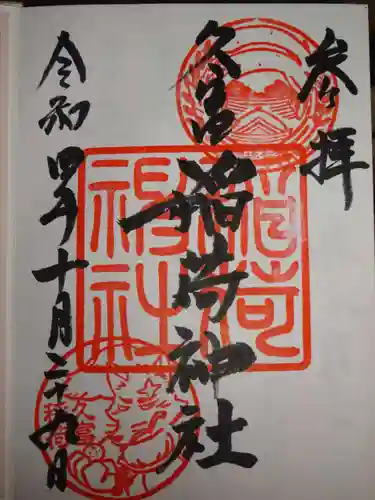 参拝
久富稲荷神社
令和四年十月二十九日
稲荷
神社